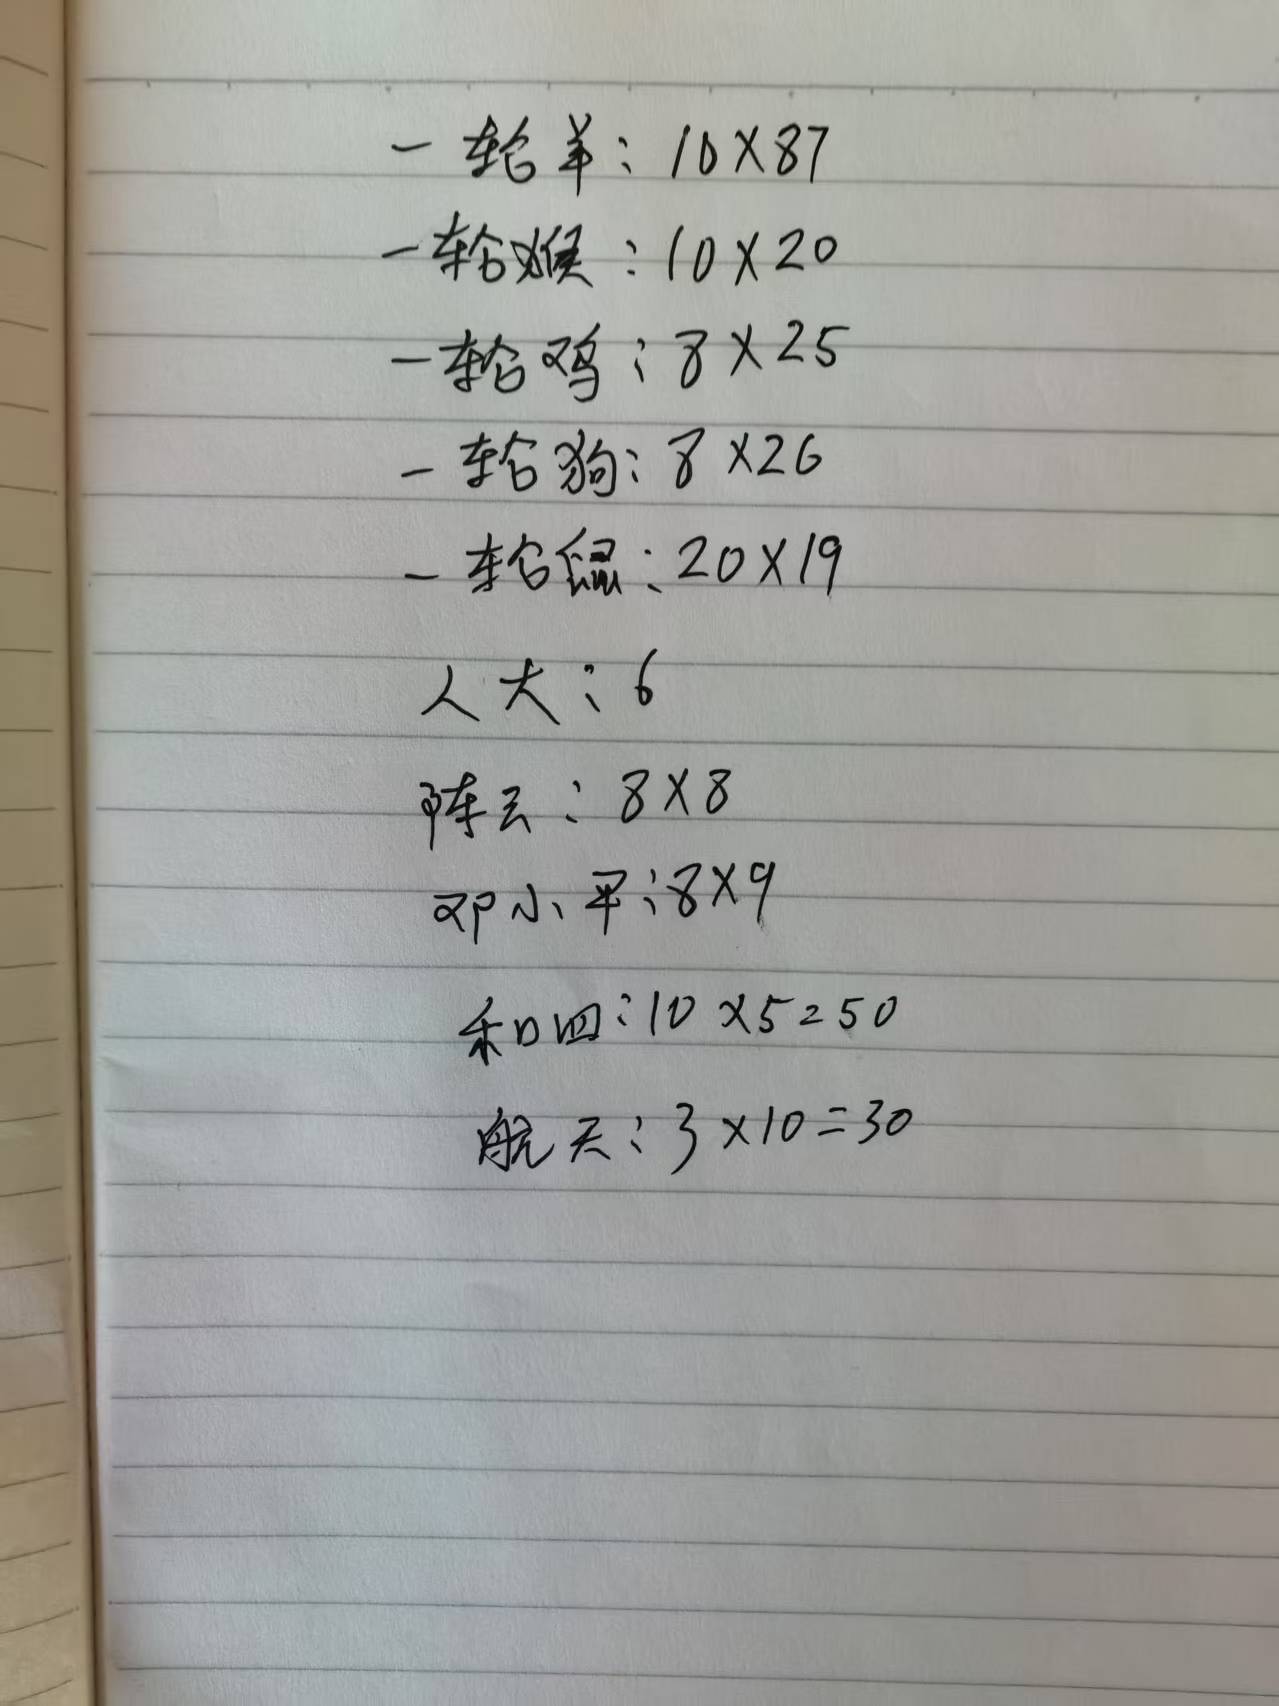 一轮羊：10X87
一轮猴：10X20
一轮鸡：8X25
一轮狗：8X26
一轮鼠：20X19
人大：6
陈云：8X8
邓小平：8X9
和四：10X5=50
航天：3X10=30